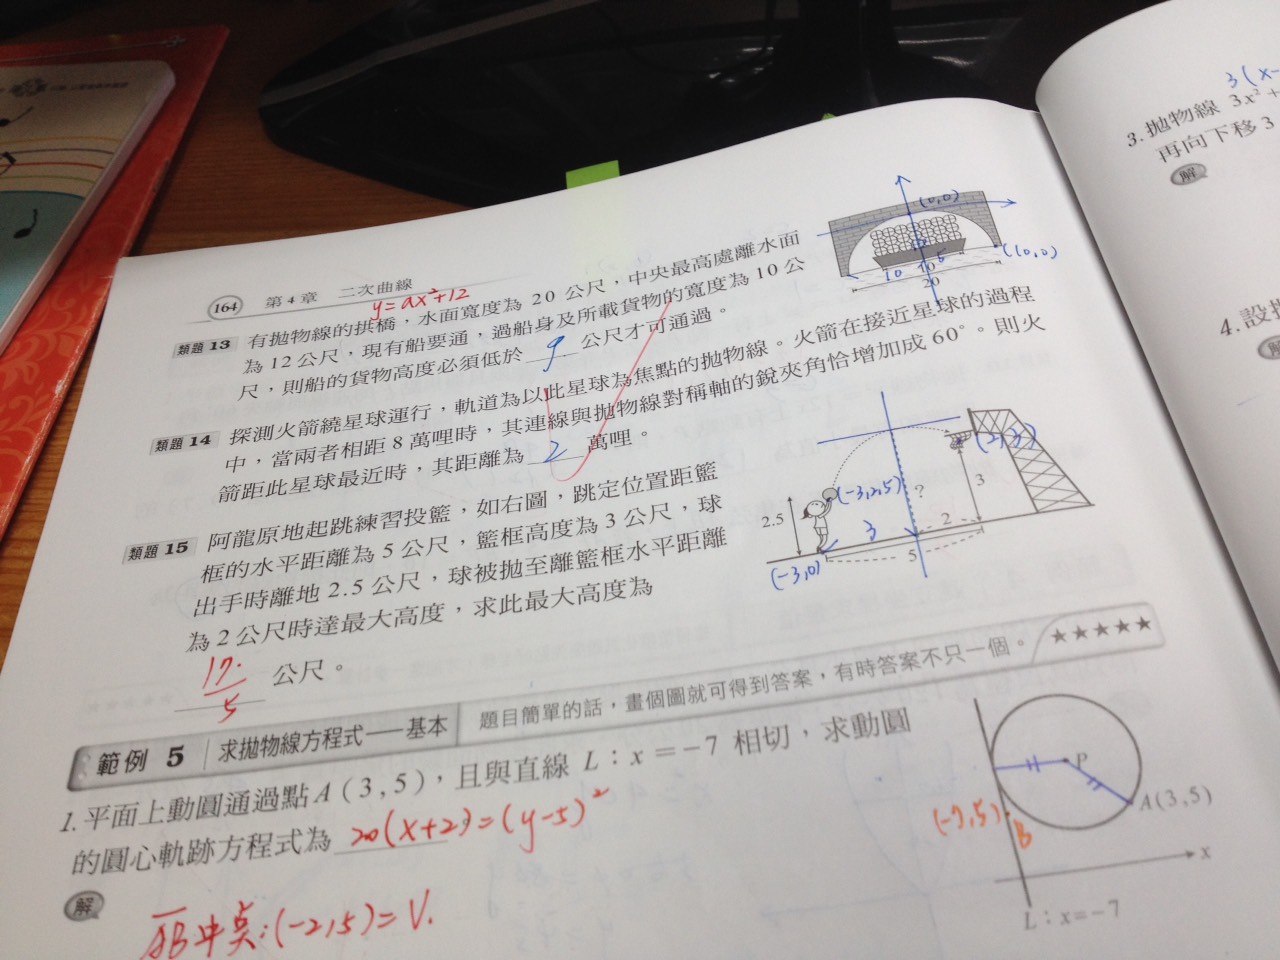 164 第4章 二次曲線
y=ax²+12
類題13 有拋物線的拱橋，水面寬度為 20 公尺，中央最高處離水面
為 12 公尺，現有船要通，過船身及所載貨物的寬度為 10 公
尺，則船的貨物高度必須低於 9 公尺才可通過。
(0,0)
(10,0)
10
5
10
20
類題14 探測火箭繞星球運行，軌道為以此星球為焦點的拋物線。火箭在接近星球的過程
中，當兩者相距 8 萬哩時，其連線與拋物線對稱軸的銳夾角恰增加成 60°。則火
箭距此星球最近時，其距離為 2 萬哩。
類題15 阿龍原地起跳練習投籃，如右圖，跳定位置距籃
框的水平距離為 5 公尺，籃框高度為 3 公尺，球
出手時離地 2.5 公尺，球被拋至離籃框水平距離
為 2 公尺時達最大高度，求此最大高度為
17/5 公尺。
(2,3)
(-3,2.5)
2.5
?
3
3
2
5
(-3,0)
範例 5 求拋物線方程式──基本 題目簡單的話，畫個圖就可得到答案，有時答案不只一個。 ★★★★★
1.平面上動圓通過點 A(3,5)，且與直線 L：x=-7 相切，求動圓
的圓心軌跡方程式為 20(x+2)=(y-5)²
解
AB中點:(-2,5)=V.
P
A(3,5)
(-7,5)
B
x
L：x=-7
3(x-
3.拋物線 3x²+
再向下移 3
解
4.設拋
解